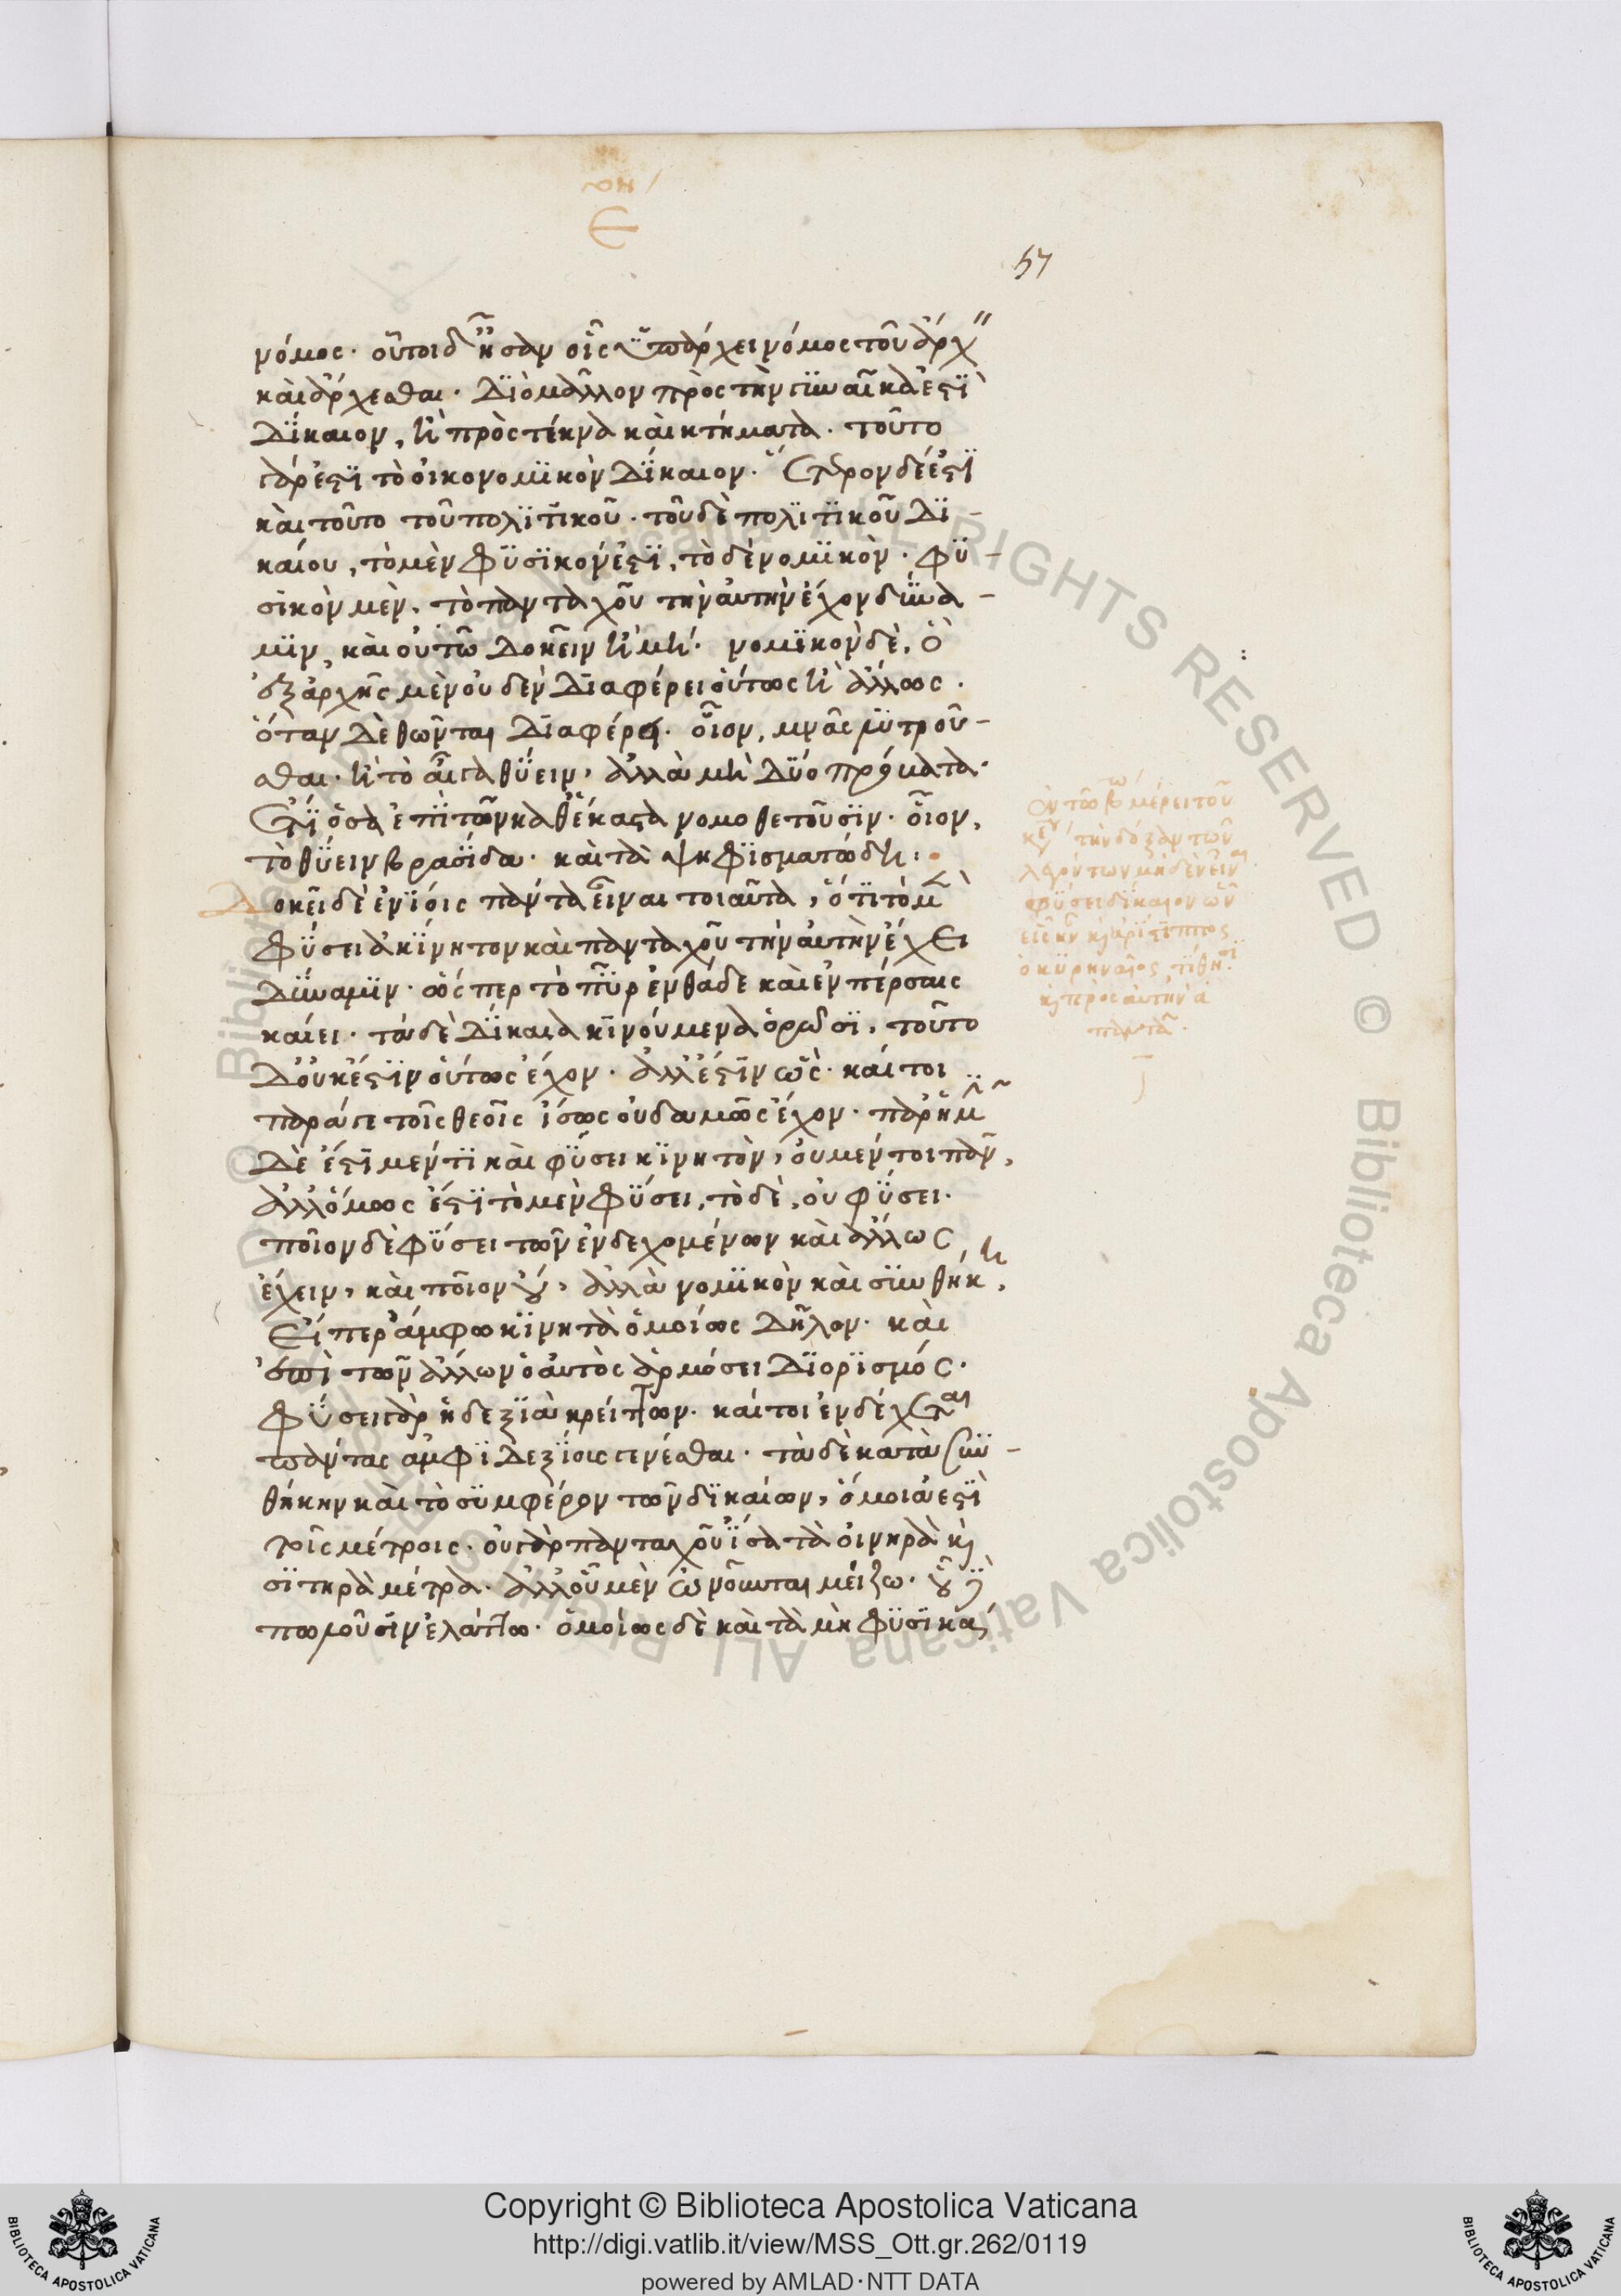 Ε
57
νόμος· οὗτοι δ' ἦσαν οἷς ὑπάρχει νόμος τοῦ ἄρχ
καὶ ἄρχεσθαι· διὸ μᾶλλον πρὸς τὴν γυναῖκά ἐστὶ
δίκαιον, ἢ πρὸς τέκνα καὶ κτήματα· τοῦτο
γάρ ἐστι τὸ οἰκονομικὸν δίκαιον· ἕτερον δέ ἐστι
καὶ τοῦτο τοῦ πολιτικοῦ· τοῦ δὲ πολιτικοῦ δι-
καίου, τὸ μὲν φυσικόν ἐστι, τὸ δὲ νομικόν· φυ-
σικὸν μὲν, τὸ πανταχοῦ τὴν αὐτὴν ἔχον δύνα-
μιν, καὶ οὐ τῷ δοκεῖν ἢ μή· νομικὸν δὲ, ὃ
ἐξ ἀρχῆς μὲν οὐδὲν διαφέρει οὕτως ἢ ἄλλως·
ὅταν δὲ θῶνται διαφέρει· οἷον, μνᾶς λυτροῦ-
σθαι· ἢ τὸ αἶγα θύειν, ἀλλὰ μὴ δύο πρόβατα·
ἔτι ὅσα ἐπὶ τῶν καθέκαστα νομοθετοῦσιν· οἷον,
τὸ θύειν βρασίδα· καὶ τὰ ψηφισματώδη:
Δοκεῖ δὲ ἐνίοις πάντα εἶναι τοιαῦτα, ὅτι τὸ μ
φύσει ἀκίνητον καὶ πανταχοῦ τὴν αὐτὴν ἔχει
δύναμιν· ὥσπερ τὸ πῦρ ἐνθάδε καὶ ἐν πέρσαις
καίει· τὰ δὲ δίκαια κινούμενα ὁρῶσι, τοῦτο
δ' οὐκ ἔστιν οὕτως ἔχον· ἀλλ' ἔστιν ὥς· καίτοι
παρά γε τοῖς θεοῖς ἴσως οὐδαμῶς ἔχον· παρ' ἡμ
δὲ ἔστι μέν τι καὶ φύσει κινητόν, οὐ μέντοι πᾶν,
ἀλλ' ὅμως ἔστι τὸ μὲν φύσει, τὸ δὲ, οὐ φύσει·
ποῖον δὲ φύσει τῶν ἐνδεχομένων καὶ ἄλλως
ἔχειν, καὶ ποῖον οὔ, ἀλλὰ νομικὸν καὶ συνθήκῃ,
εἴπερ ἄμφω κινητὰ ὁμοίως δῆλον· καὶ
ἐπὶ τῶν ἄλλων ὁ αὐτὸς ἁρμόσει διορισμός·
φύσει γὰρ ἡ δεξιὰ κρείττων· καίτοι ἐνδέχεται
πάντας ἀμφιδεξίοις γενέσθαι· τὰ δὲ κατὰ συν-
θήκην καὶ τὸ συμφέρον τῶν δικαίων, ὅμοιά ἐστι
τοῖς μέτροις· οὐ γὰρ πανταχοῦ ἴσα τὰ οἰνηρὰ κ
σιτηρὰ μέτρα· ἀλλ' οὗ μὲν ὠνοῦνται μείζω· οὗ δὲ
πωλοῦσιν ἐλάττω· ὁμοίως δὲ καὶ τὰ μὴ φυσικὰ
τὴν δόξαν τῶν
λεγόντων μηδὲν εἶναι
φύσει δίκαιον ὧν
εἷς ἦν κ ἀρίστιππος
ὁ κυρηναῖος, τίθησι
κ πρὸς αὐτὴν ἀ
παντᾶ·
Copyright © Biblioteca Apostolica Vaticana
http://digi.vatlib.it/view/MSS_Ott.gr.262/0119
powered by AMLAD·NTT DATA